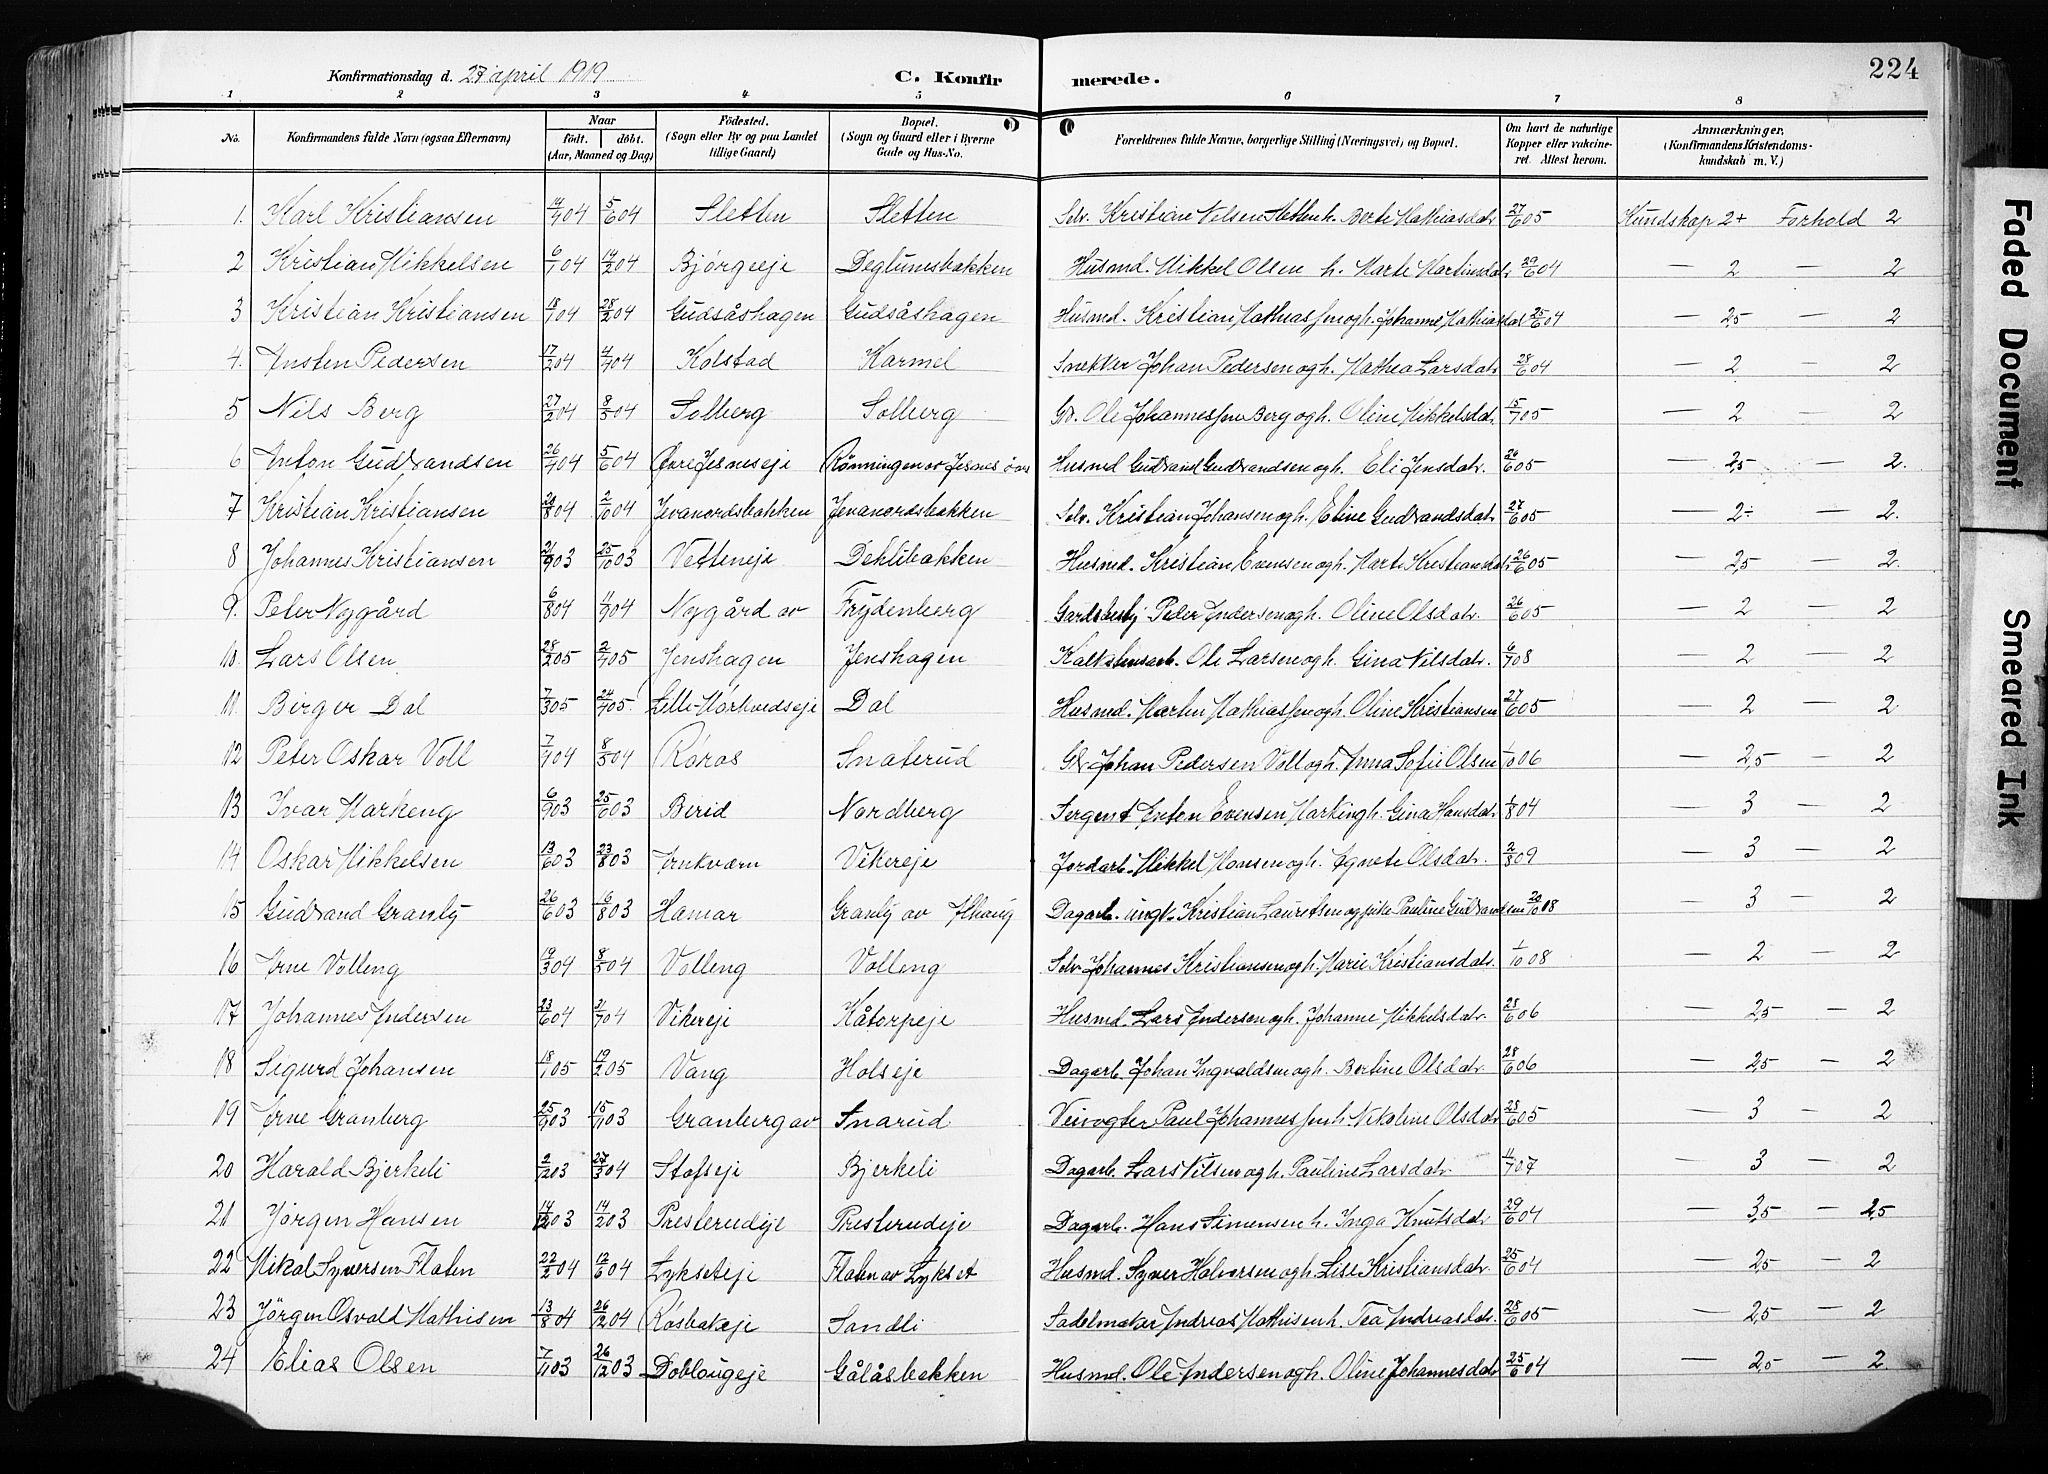 Konfirmationsdag d. 27 april 1919 C. Konfirmerede. 224
1 2 3 4 5 6 7 8
No. Konfirmandens fulde Navn (ogsaa Efternavn) Naar født. døbt. (Aar, Maaned og Dag) Fødested. (Sogn eller By og paa Landet tillige Gaard) Bopæl. (Sogn og Gaard eller i Byerne Gade og Hus-No. Forældrenes fulde Navne, borgerlige Stilling (Næringsvei) og Bopæl. Om havt de naturlige Kopper eller vaccineret. Attest herom. Anmærkninger, (Konfirmandens Kristendomskundskab m. V.)
1. Karl Kristiansen 14/4 04 5/6 04 Sletten Sletten Selv. Kristian Nilsen Sletten h. Berte Mathiasdatr 27/6 05 Kundskap 2+ Forhold 2
2 Kristian Mikkelsen 6/1 04 14/2 04 Bjørgeeje Deglumsbakken Husmd. Mikkel Olsen h. Marte Martinsdatr 29/6 04 — 2 — 2
3 Kristian Kristiansen 18/1 04 28/2 04 Gudsåshagen Gudsåshagen Husmd. Kristian Mathiassen og h. Johanne Mathiasdat 25/6 04 — 2,5 — 2
4. Ansten Pedersen 17/2 04 4/4 04 Kolstad Karmel Snekker Johan Pedersen og h. Mathea Larsdatr 28/6 04 — 2 — 2
5 Nils Berg 27/2 04 8/5 04 Solberg Solberg Gb. Ole Johannessen Berg og h. Oline Mikkelsdatr. 15/7 05 — 2 2
6 Anton Gudbrandsen 26/4 04 5/6 04 Øvre Jesneseje Rønningen av Jesnes øvre Husmd Gudbrand Gudbrandsen og h. Eli Jensdatr. 26/6 05 — 2,5 — 2.
7 Kristian Kristiansen 20/8 04 2/10 04 Jevanordsbakken Jevanordsbakken Selv. Kristian Johansen og h. Eline Gudbrandsdatr 27/6 05 — 2÷ — 2.
8 Johannes Kristiansen 21/9 03 25/10 03 Vetteneje Dehlibakken Husmd. Kristian Evensen og h. Marte Kristiansdatr 26/6 05 — 2,5 — 2.
9. Peter Nygård 6/8 04 11/9 04 Nygård av Frydenberg Peder Andersen og h. Oline Olsdatr. 26/6 05 — 2 — 2
10. Lars Olsen 28/2 05 2/4 05 Jenshagen Jenshagen Ole Larsen og h. Gina Nilsdatr. 6/7 08 — 2 — 2
11. Birger Dal 7/3 05 24/4 05. Lille-Mørkvedseje Dal Husmd. Martin Mathiassen og h Oline Kristiansen 27/6 05 — 2 — 2
12 Peter Oskar Voll 7/4 04 8/5 04 Røros Snaterud Gb. Johan Pedersen Voll og h. Anna Sofie Olsen 1/10 06 — 2,5 — 2
13 Ivar Markeng 6/9 03 25/6 03 Berid Nordberg Sergent Anton Evensen Marking h. Gina Hansdatr. 1/8 04 — 3 — 2
14 Oskar Mikkelsen 13/6 03 23/8 03 Ankværn Vikereje Jordarb. Mikkel Hansen og h. Agnete Olsdatr. 2/8 09 — 3 — 2
15 Gudbrand Granly 26/6 03 16/8 03 Hamar Granly av Ilhaug Dagarb. ungk. Kristian Lauretsen og pike Pauline Gudbrandsen 20/10 08 — 3 — 2
16 Arne Volleng 19/3 04 8/5 04 Volleng Volleng Selv. Johannes Kristiansen og h. Marie Kristiansdatr. 1/10 08 — 2 — 2
17 Johannes Andersen 23/6 04 31/7 04 Vikereje Kåtorpeje Husmd. Lars Andersen og h. Johanne Mikkelsdatr. 28/6 06 — 2,5 — 2
18 Sigurd Johansen 18/1 05 19/2 05 Vang Holseje Dagarb. Johan Ingvaldsen og h. Bertine Olsdatr. 28/6 06 — 2,5 — 2
19 Arne Granberg 25/9 03 15/11 03 Granberg av Snarud Veivogter Paul Johannessen h. Nikoline Olsdatr 28/6 05 — 3 — 2
20 Harald Bjerkeli 2/2 03 27/3 04 Stofseje Bjerkeli Dagarb. Lars Nilsen og h. Pauline Larsdatr. 11/7 07 — 3 — 2
21 Jørgen Hansen 14/12 03 14/2 03 Presterudeje Presterudeje Dagarb. Hans Simensen h. Inga Knutsdatr 29/6 04 — 3,5 — 2,5
22 Mikal Syversen Flaten 22/2 04 12/6 04 Lykseteje Flaten av Lykset Husmd. Syver Halvorsen og h. Lise Kristiansdatr. 25/6 04 — 2,5 — 2
23 Jørgen Osvald Mathisen 13/8 04 26/12 04 Røsbakeje Sandli Sadelmaker Andreas Mathisen h. Tea Andreasdatr. 28/6 05 — 2,5 — 2
24 Elias Olsen 7/11 03 26/12 03 Doblougeje Gålåsbakken Husmd. Ole Andersen og h. Oline Johannesdatr 25/6 04 — 2,5 — 2
Faded Document
Smeared Ink